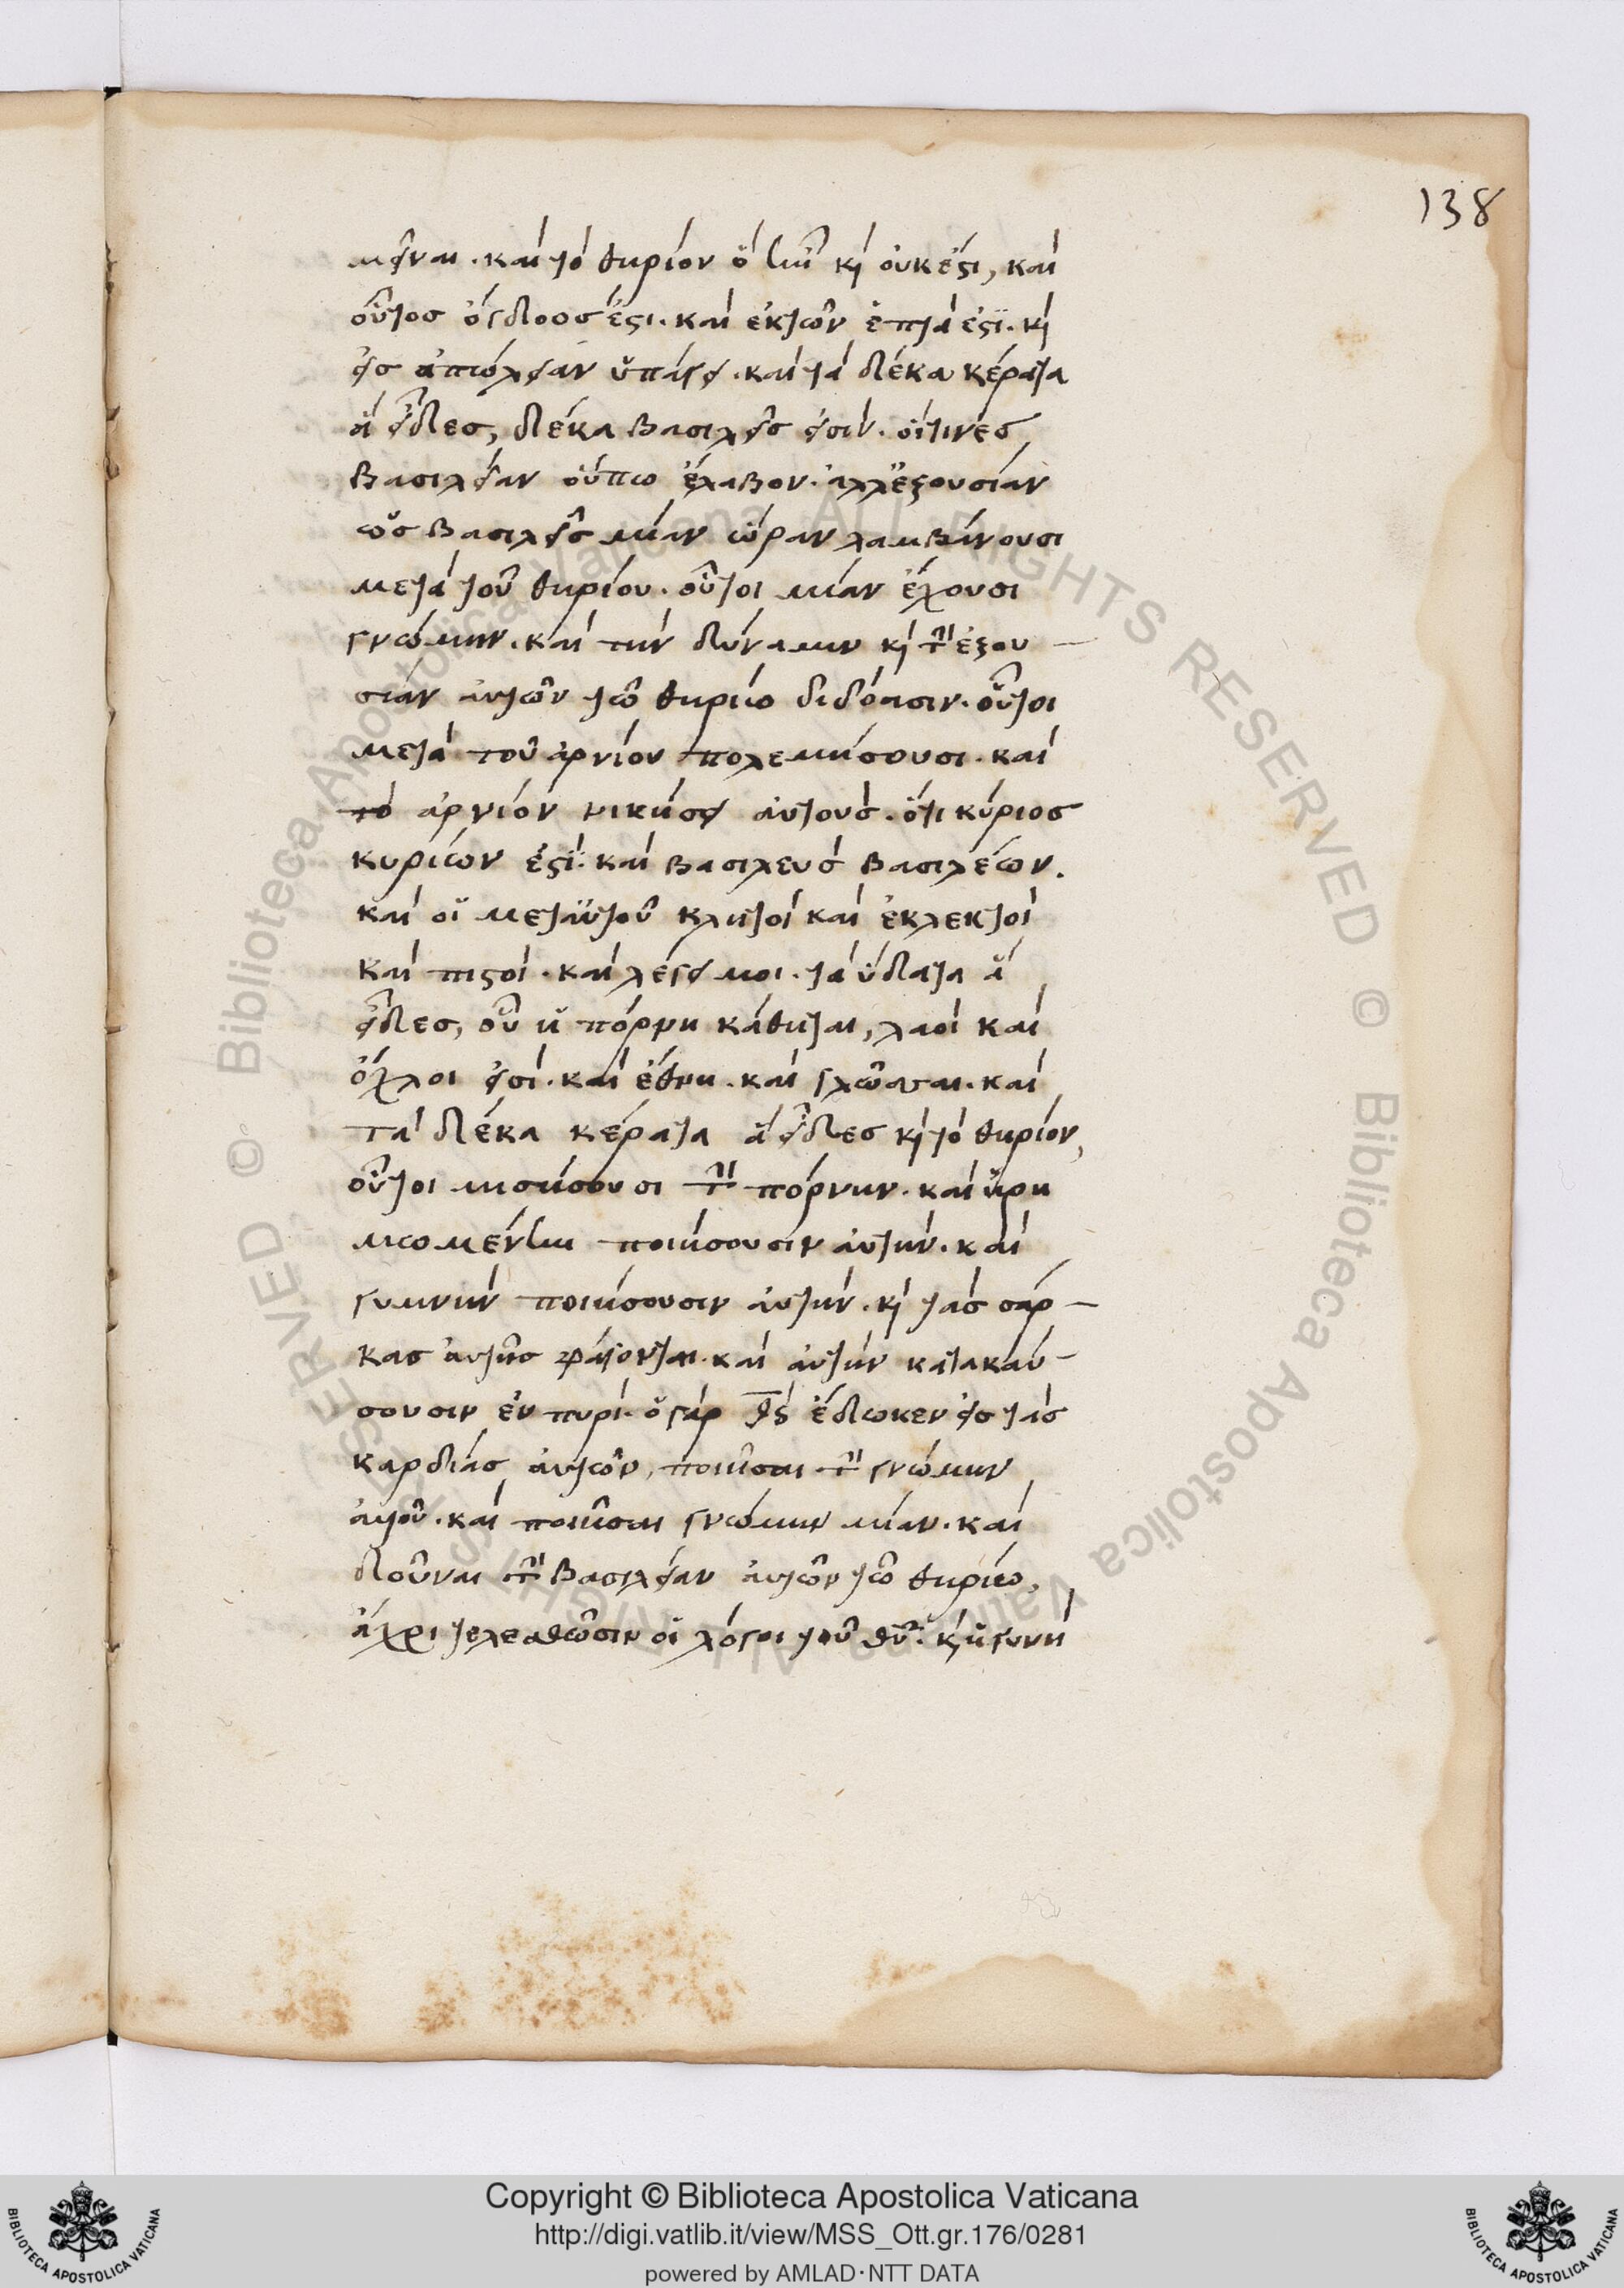 138
μεῖναι. καὶ τὸ θηρίον ὃ ἦν κ(αὶ) οὐκ ἔστι, καὶ
οὗτος ὄγδοος ἐστι. καὶ ἐκ τῶν ἑπτά ἐστϊ. κ(αὶ)
εἰς ἀπώλειαν ὑπάγει. καὶ τὰ δέκα κέρατα
ἃ εἶδες, δέκα βασιλεῖς εἰσὶν. οἵτινες
βασιλείαν οὔπω ἔλαβον. ἀλλ' ἐξουσίαν
ὡς βασιλεῖς μίαν ὥραν λαμβάνουσι
μετὰ τοῦ θηρίου. οὗτοι μίαν ἔχουσι
γνώμην. καὶ τὴν δύναμιν κ(αὶ) τ(ὴν) ἐξου
σίαν αὐτῶν τῶ θηρίω διδόασιν. οὗτοι
μετὰ τοῦ ἀρνίου πολεμήσουσι. καὶ
τὸ ἀρνίον νικήσει αὐτοὺς. ὅτι κύριος
κυρίων ἐστϊ. καὶ βασιλεὺς βασιλέων.
καὶ οἱ μετ' αὐτοῦ κλητοὶ καὶ ἐκλεκτοὶ
καὶ πιστοὶ. καὶ λέγει μοι. τὰ ὕδατα ἃ
εἶδες, οὗ ἡ πόρνη κάθηται, λαοὶ καὶ
ὄχλοι εἰσὶ. καὶ ἔθνη. καὶ γλῶσσαι. καὶ
τὰ δέκα κέρατα ἃ εἶδες κ(αὶ) τὸ θηρίον,
οὗτοι μισήσουσι τ(ὴν) πόρνην. καὶ ἠρη
μωμένην ποιήσουσιν αὐτήν. καὶ
γυμνὴν ποιήσουσιν αὐτήν. κ(αὶ) τὰς σάρ
κας αὐτῆς φάγονται. καὶ αὐτὴν κατακαύ
σουσιν ἐν πυρί. ὁ γὰρ θς ἔδωκεν εἰς τὰς
καρδίας αὐτῶν, ποιῆσαι τ(ὴν) γνώμην
αὐτοῦ. καὶ ποιῆσαι γνώμην μίαν. καὶ
δοῦναι τ(ὴν) βασιλείαν αὐτῶν τῶ θηρίω,
ἄχρι τελεσθῶσιν οἱ λόγοι τοῦ θυ. κ(αὶ) ἡ γυνὴ
Copyright © Biblioteca Apostolica Vaticana
http://digi.vatlib.it/view/MSS_Ott.gr.176/0281
powered by AMLAD·NTT DATA
BIBLIOTECA APOSTOLICA VATICANA
BIBLIOTECA APOSTOLICA VATICANA